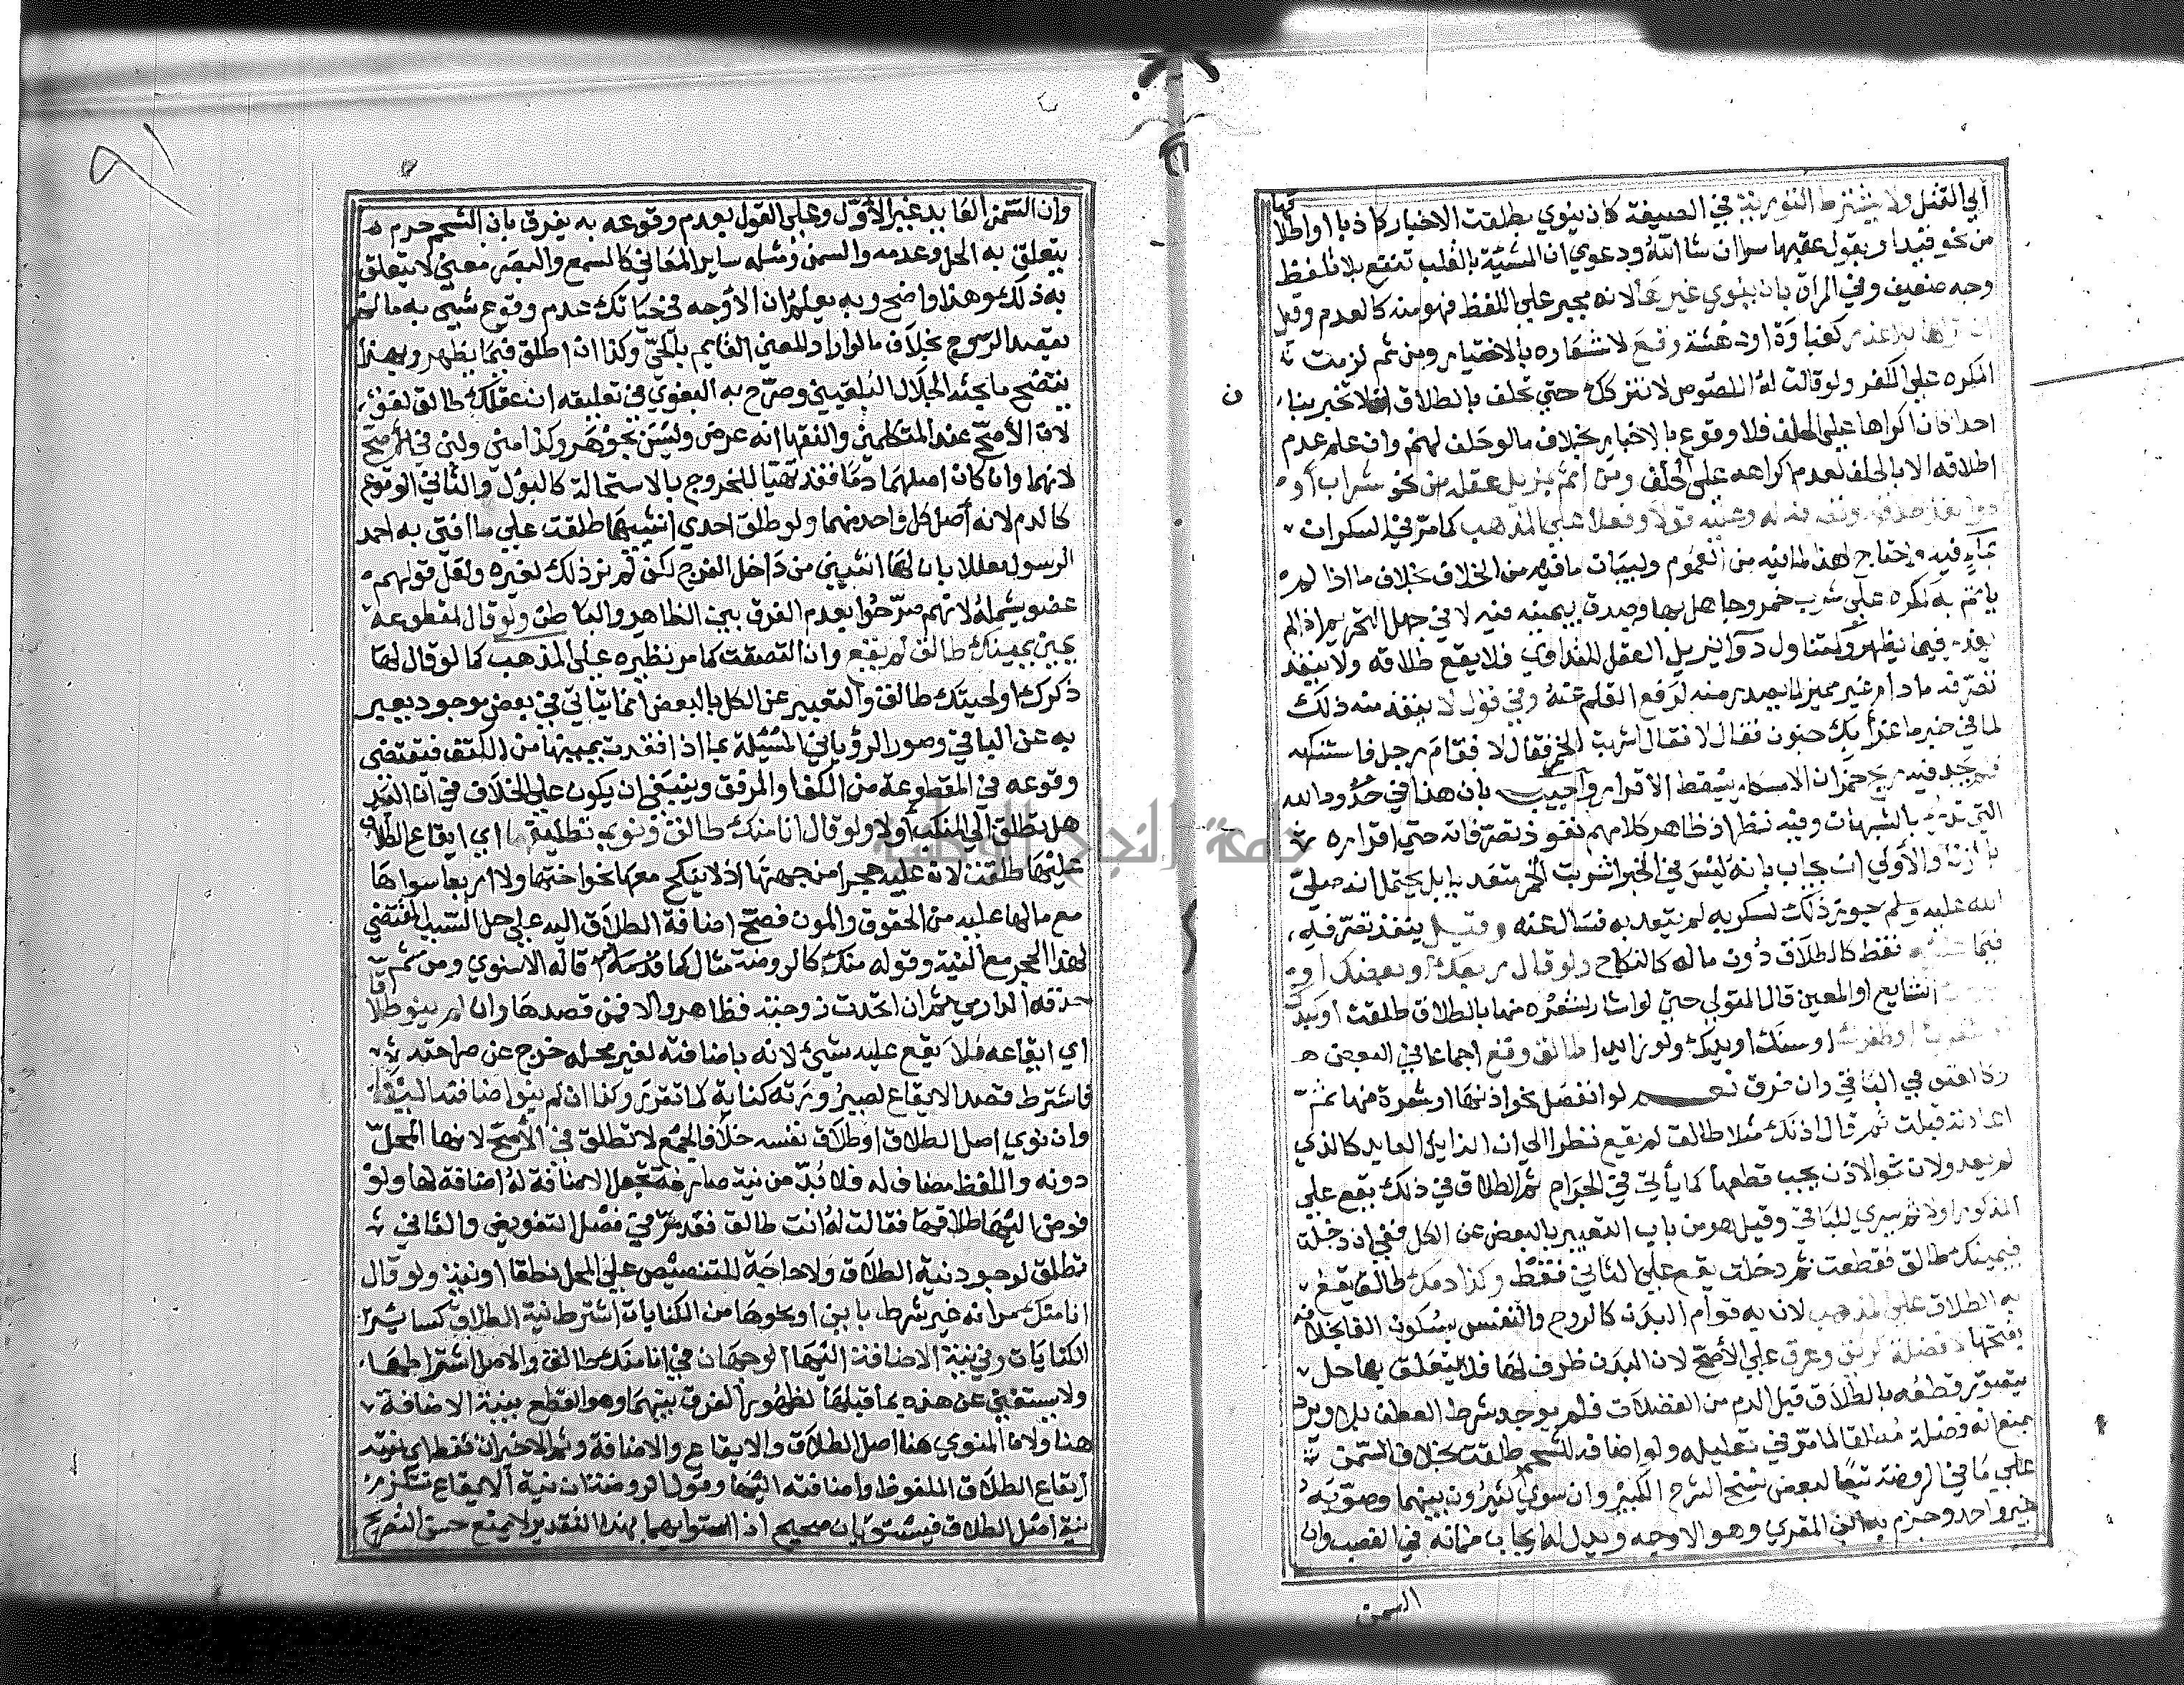 أبي القتل ولا يشترط التورية في الصيغة كان ينوي بطلقت الاخبار كاذبا او اطلاقها
من نحو قيد او يقول عقبها سرا ان شا الله ودعوي ان المشية بالقلب تنفع بلا تلفظ
وجه ضعيف وفي المراة بان ينوي غيرها لانه مجبر علي اللفظ فهو منه كالعدم وقيل
ان تركها بلا عذر كغباوة او دهشة وقع لاشعاره بالاختيار ومن ثم لزمت
المكره علي الكفر ولو قالت له اللصوص لا نتركك حتي تحلف بالطلاق انك لا تخبر بنا
احدا كان اكراها علي الحلف فلا وقوع بالاخبار بخلاف مالو حلف لهم وان علم عدم
اطلاقه الا بالحلف لعدم اكراهه علي الحلف ومن اثم بمزيل عقله من نحو شراب او
دوا نفذ طلاقه وتصرفه له وعليه قولا وفعلا علي المذهب كما مر في السكران
بما فيه واحتاج لهذا لما فيه من العموم ولبيان ما فيه من الخلاف بخلاف ما اذا لم
ياثم به كمكره علي شرب خمر وجاهل بها وصدق بيمينه فيه لا في جهل التحريم اذا لم
يعذر فيما يظهر وكمتناول دوا ليزيل العقل للتداوي فلا يقع طلاقه ولا ينفذ
تصرفه مادام غير مميز لما يصدر منه لرفع القلم عنه وفي قول لا ينفذ منه ذلك
لما في خبر ماعز أبك جنون فقال لا فقال اشربت الخمر فقال لا فقام رجل فاستنكهه
فلم يجد فيه ريح خمر ان الاسكار يسقط الاقرار واجيب بان هذا في حدود الله
التي تدرأ بالشبهات وفيه نظر اذ ظاهر كلامهم نفوذ تصرفاته حتي اقراره
بالزنا والاولي ان يجاب بانه ليس في الخبر اشربت الخمر متعديا بل يحتمل انه صلي
الله عليه وسلم جوز ذلك لسكر به لم يتعد به فسال عنه وقيل ينفذ تصرفه
فيما عليه فقط كالطلاق دون ماله كالنكاح ولو قال ربعك او بعضك او
الشايع او المعين قال المتولي حتي لو اشار لشعره منها بالطلاق طلقت او كبدك
او شعرك او ظفرك او سنك او يدك ولو زايدا طالق وقع اجماعا في البعض
وكالعتق في الباقي وان فرق نعم لو انفصل نحو اذنها او شعرة منها ثم
اعادته فثبت ثم قال اذنك مثلا طالق لم يقع نظرا الي ان الزايل العايد كالذي
لم يعد ولان نحو الاذن يجب قطعها كما يأتي في الجراح ثم الطلاق في ذلك يقع علي
المذكور اولا ثم يسري للباقي وقيل هو من باب التعبير بالبعض عن الكل ففي ان دخلت
فيمينك طالق فقطعت ثم دخلت يقع علي الثاني فقط وكذا دمك طالق يقع
به الطلاق علي المذهب لان به قوام البدن كالروح والنفس بسكون الفا بخلافه
بفتحها لا فضلة كريق وعرق علي الاصح لان البدن ظرف لها فلا يتعلق بها حل
يتصور قطعه بالطلاق قيل الدم من الفضلات فلم يوجد شرط العطف بلا ويرد
بمنع انه فضلة مطلقا لما مر في تعليله ولو اضافه للشحم طلقت بخلاف السمن
علي ما في الروضة تبعا لبعض نسخ الشرح الكبير وان سوي كثيرون بينهما وصوبه
غير واحد وجزم به ابن المقري وهو الاوجه ويدل له ايجاب ضمانه في الغصب وان
السمن
وان السمن العايد غير الاول وعلي القول بعدم وقوعه به يفرق بان الشحم جرم
يتعلق به الحل وعدمه والسمن ومثله ساير المعاني كالسمع والبصر معني لا يتعلق
به ذلك وهذا واضح وبه يعلم ان الاوجه في حياتك عدم وقوع شيي به مالم
يقصد الروح بخلاف مالو اراد المعني القايم بالحي وكذا ان اطلق فيما يظهر وبهذا
يتضح ما بحثه الجلال البلقيني وصرح به البغوي في تعليقه ان عقلك طالق لغو
لان الاصح عند المتكلمين والفقها انه عرض وليس بجوهر وكذا مني ولبن في الاصح
لانهما وان كان اصلهما دما فقد تهيا للخروج بالاستحالة كالبول والثاني الوقوع
كالدم لانه أصل كل واحد منهما ولو طلق احدي انثييها طلقت علي ما افتي به احمد
الرسول معللا بان لها انثيين من داخل الفرج لكن لم نر ذلك لغيره ولعل قولهم
عضو يشمله لانهم صرحوا بعدم الفرق بين الظاهر والباطن ولو قال لمقطوعة
يمين يمينك طالق لم يقع وان التصقت كما مر نظيره علي المذهب كما لو قال لها
ذكرك او لحيتك طالق والتعبير عن الكل بالبعض انما يتاتي في بعض موجود يعبر
به عن الباقي وصور الروياني المسئلة بما اذا فقدت يمينها من الكتف فتقتضي
وقوعه في المقطوعة من الكف او المرفق وينبغي ان يكون علي الخلاف في ان اليد
هل تطلق الي المنكب أولا ولو قال انا منك طالق ونوي تطليقها اي ايقاع الطلاق
عليها طلقت لان عليه حجرا من جهتها اذ لا ينكح معها نحو اختها ولا اربعا سواها
مع مالها عليه من الحقوق والمون فصح اضافة الطلاق اليه علي حل السبب المقتضي
لهذا الحجر مع النية وقوله منك كالروضة مثال كما قدمه قاله الاسنوي ومن ثم
حذفه الدارمي ثم ان اتحدت زوجته فظاهر والا فمن قصدها وان لم ينو طلاقا
اي ايقاعه فلا يقع عليه شيئ لانه باضافته لغير محله خرج عن صراحته
فاشترط قصد الايقاع لصيرورته كناية كما تقرر وكذا ان لم ينو اضافته اليها
وان نوي اصل الطلاق او طلاق نفسه خلافا لجمع لا تطلق في الأصح لانها المحل
دونه واللفظ مضاف له فلا بد من نية صارفة تجعل الاضافة له اضافة لها ولو
فوض اليها طلاقها فقالت له انت طالق فقد مر في فصل التفويض والثاني
تطلق لوجود نية الطلاق ولا حاجة للتنصيص علي المحل نطقا او نية ولو قال
انا منك مر انه غير شرط باين او نحوها من الكنايات اشترط نية الطلاق كساير
الكنايات وفي نية الاضافة اليها الوجهان في انا منك طالق والاصح اشتراطها
ولا يستغني عن هذه بما قبلها لظهور الفرق بينهما وهو القطع بنية الاضافة
هنا ولان المنوي هنا اصل الطلاق والايقاع والاضافة وثم الاخيران فقط اي نية
ايقاع الطلاق الملفوظ واضافته اليها وقول الروضة ان نية الايقاع تستلزم
نية اصل الطلاق فيستويان صحيح اذ استوايهما بهذا التقدير لا يمنع حسن التصريح